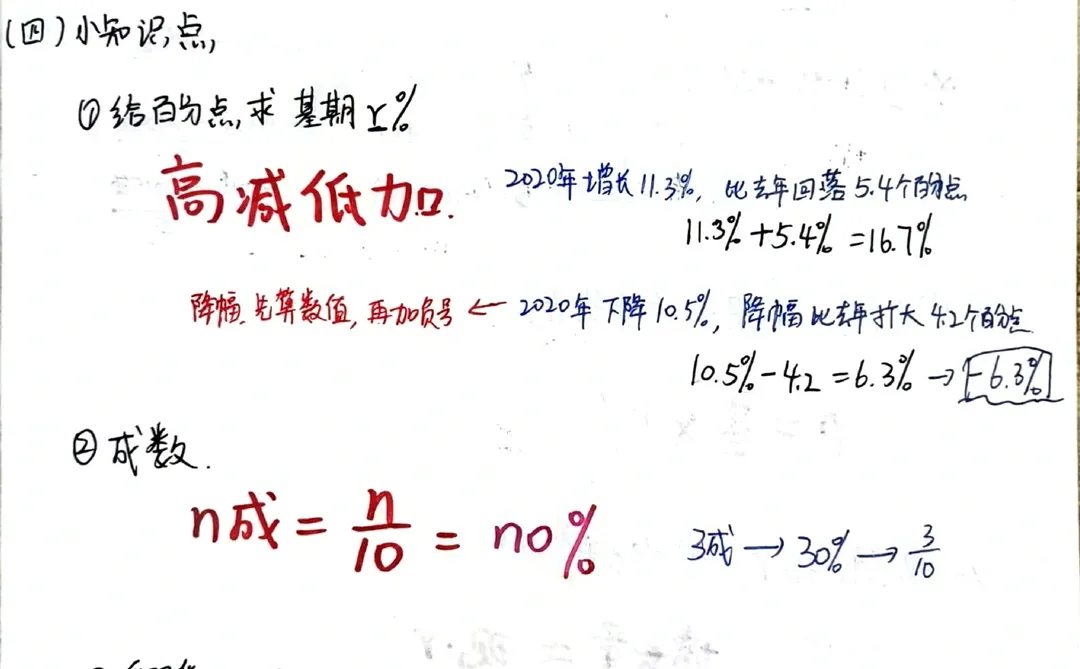 (四)小知识点,
①给百分点,求 基期r%
高减低加.
2020年增长11.3%, 比去年回落5.4个百分点
11.3%+5.4%=16.7%
降幅.先算数值,再加负号 ← 2020年下降10.5%, 降幅比去年扩大4.2个百分点
10.5%-4.2=6.3% → -6.3%
②成数.
n成 = n/10 = n0%
3成 → 30% → 3/10